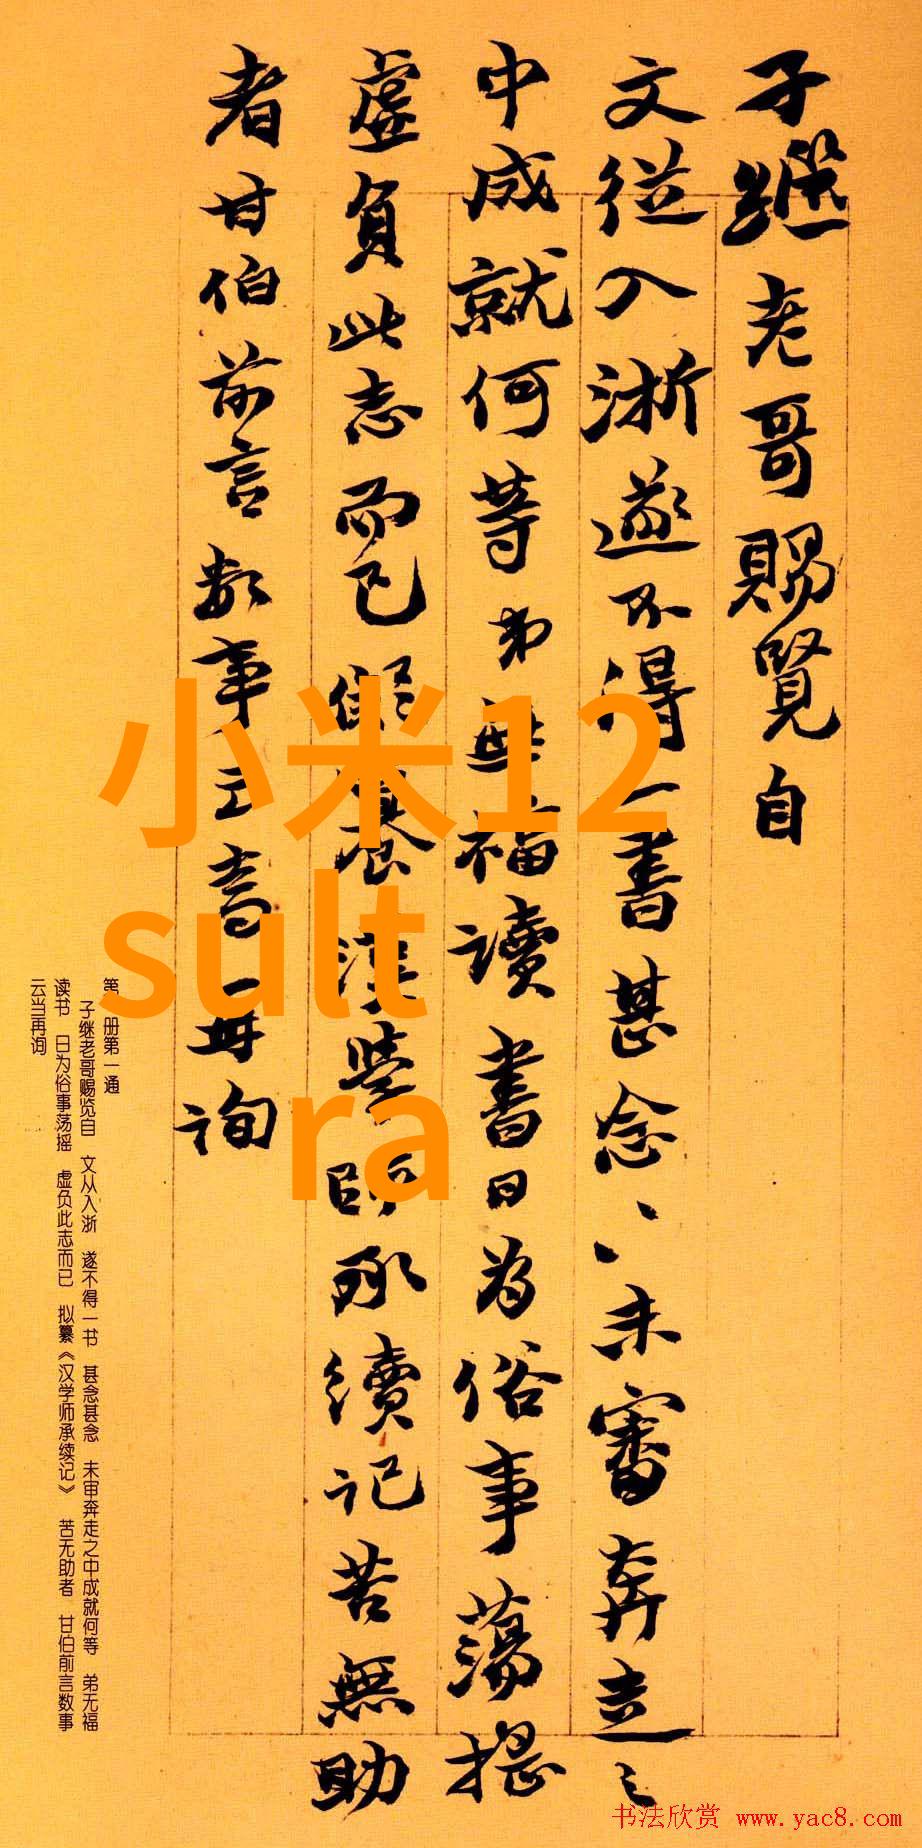 子繼老哥賜覽自
文從入浙遂不得一書甚念〻未審奔走之
中成就何等弟無福讀書日為俗事蕩搖
虛負此志而已儗纂漢學師承續記苦無助
者甘伯前言數事云當再詢
小米12
sult
ra
第 册第一通
子继老哥赐览自 文从入浙 遂不得一书 甚念甚念 未审奔走之中成就何等 弟无福
读书 日为俗事荡摇 虚负此志而已 拟纂《汉学师承续记》 苦无助者 甘伯前言数事
云当再询
书法欣赏 www.yac8.com